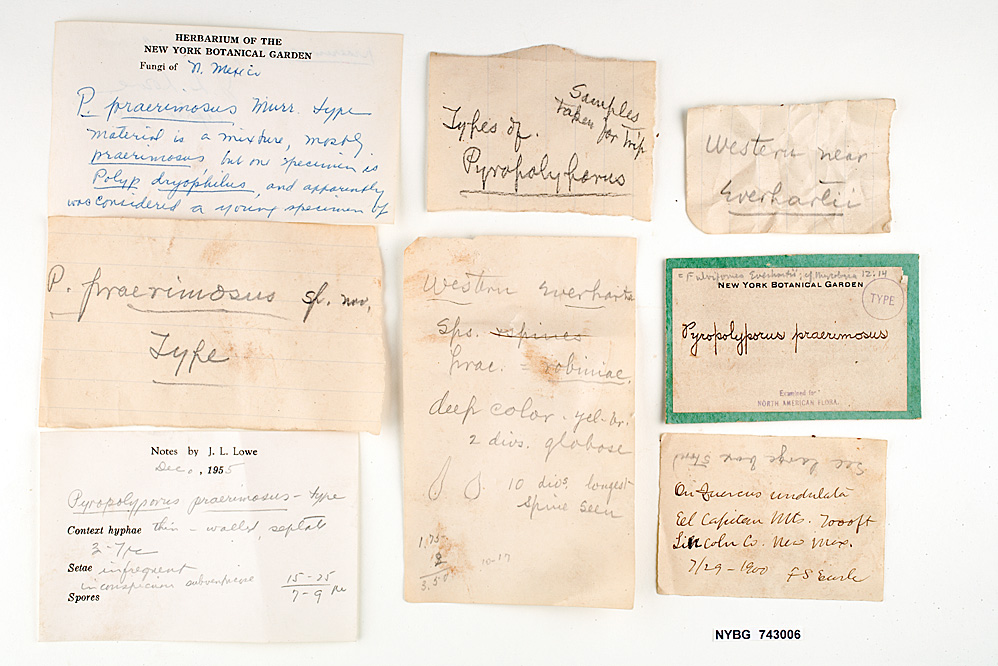 HERBARIUM OF THE
NEW YORK BOTANICAL GARDEN
Fungi of N. Mexico
P. praerimosus Murr. type
material is a mixture, mostly
praerimosus but one specimen is
Polyp dryophilus, and apparently
was considered a young specimen of
P. praerimosus sp. nov.
Type
Notes by J. L. Lowe
Dec., 1955
Pyropolyporus praerimosus - type
Context hyphae thin-walled, septate
3-7µ
Setae infrequent
inconspicuous subventricose
Spores
15-25
7-9 µ
Types of
Samples
taken for trip
Pyropolyporus
Western Everhartii
Sps. spines
prae. = robiniae.
deep color - yel-br.
2 divs. globose
10 divs longest
spine seen
1.75
2
3.5
10-17
Western near
Everhartii
= Fulvifomes Everhartii; cf Mycologia 12:14
NEW YORK BOTANICAL GARDEN
TYPE
Pyropolyporus praerimosus
Examined for
NORTH AMERICAN FLORA.
See large box
On Quercus undulata
Eel Capitan Mts. 7000ft
Lincoln Co. New Mex.
7/29-1900 FS Earle
NYBG 743006